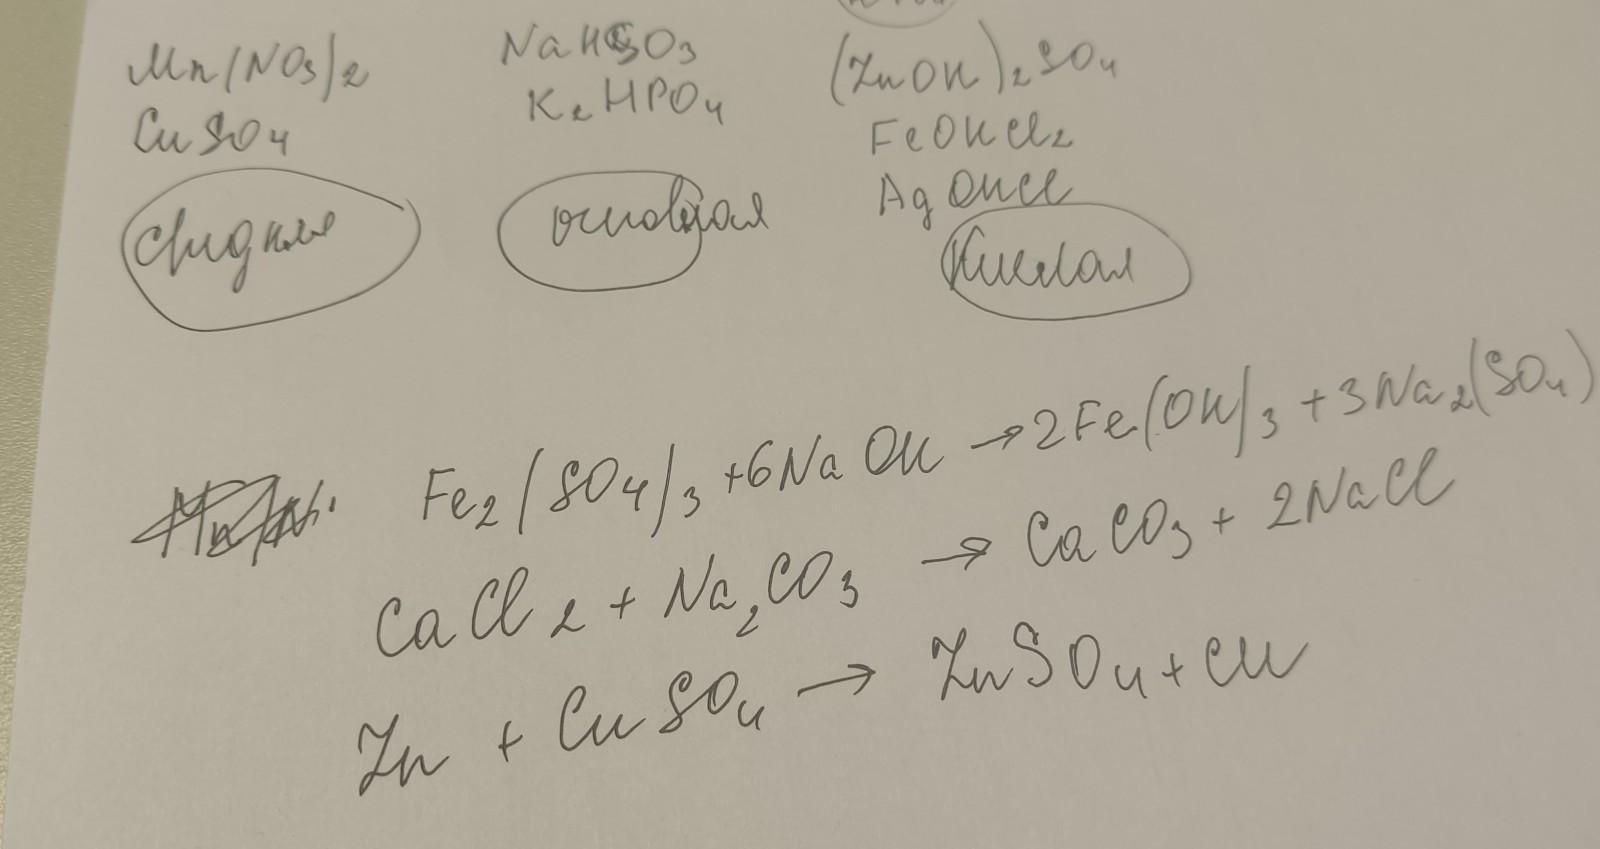 Mn(NO3)2 NaHSO3 (ZnOH)2SO4
CuSO4 K2HPO4 FeOHCl2
AgOHCl
средняя основная Кислая
Fe2(SO4)3 + 6NaOH → 2Fe(OH)3 + 3Na2(SO4)
CaCl2 + Na2CO3 → CaCO3 + 2NaCl
Zn + CuSO4 → ZnSO4 + Cu